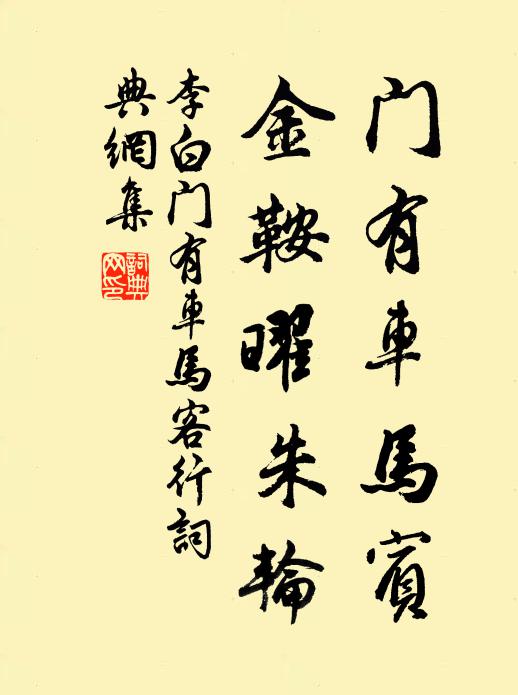 门有車馬賓
金鞍曜朱輪
李白门有車馬客行詞
典網集
詞典网印